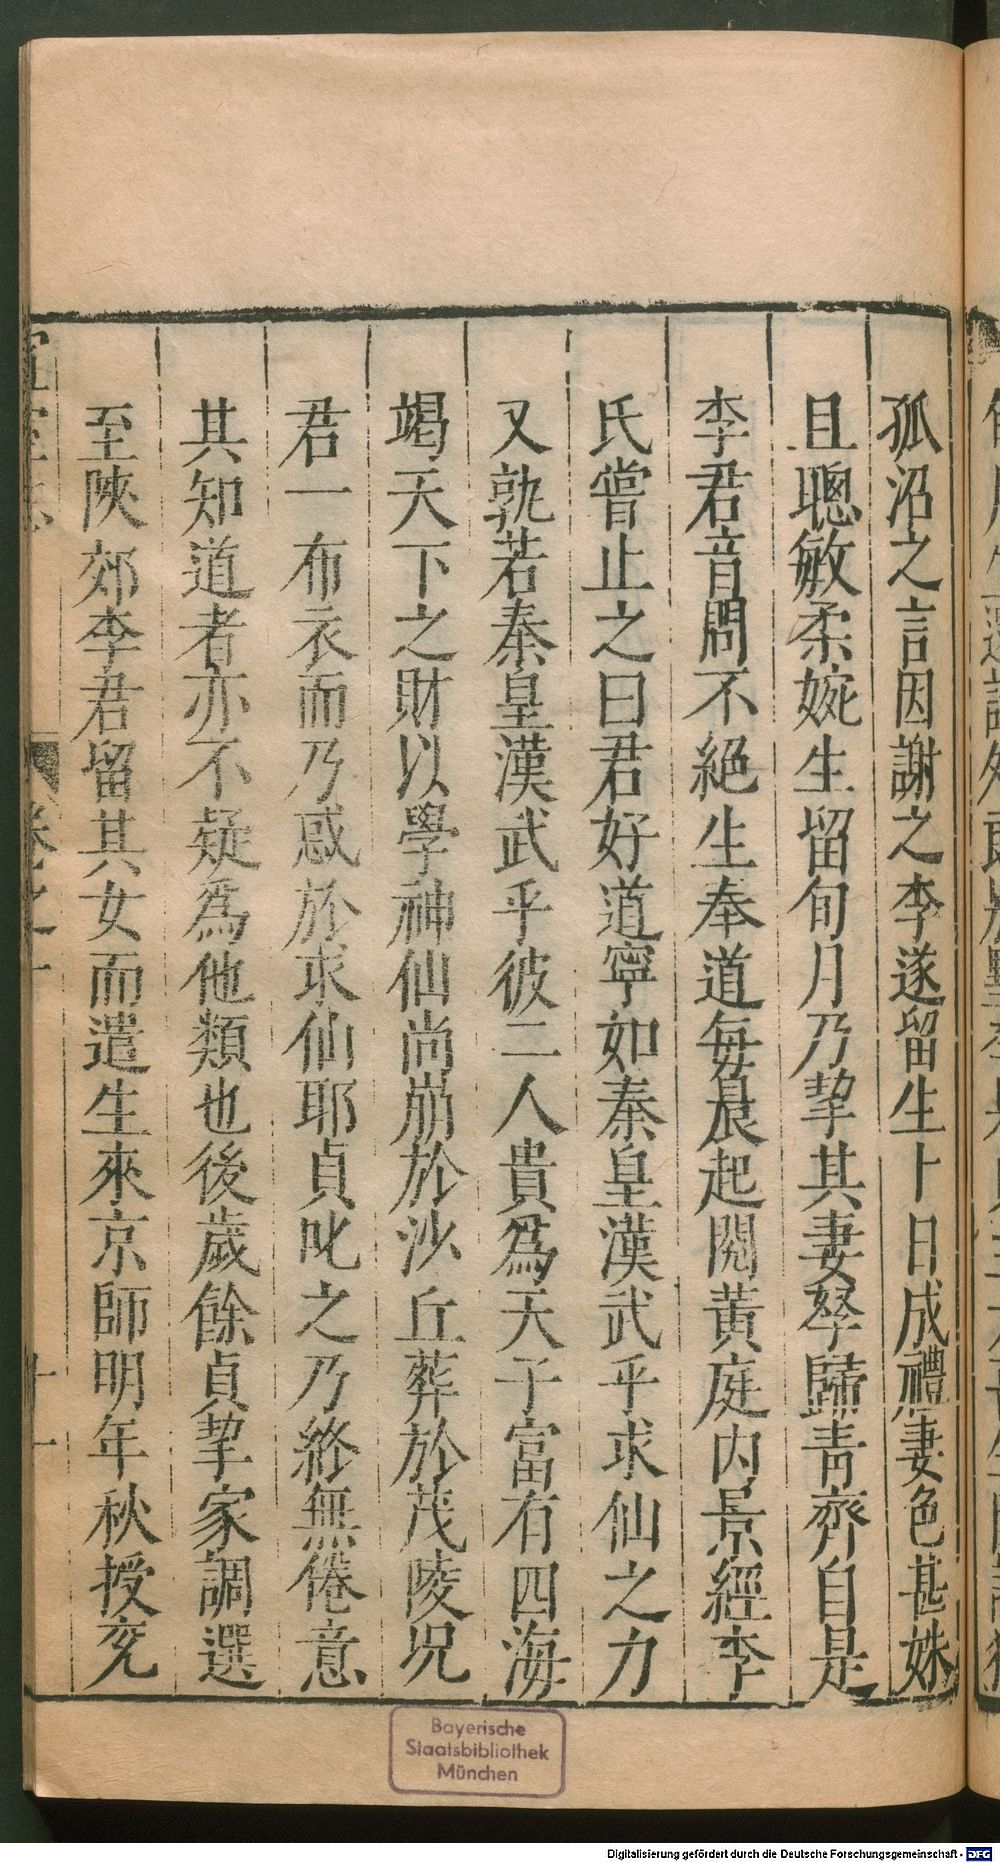 孤沼之言因謝之李遂留生卜日成禮妻色甚姝
且聰敏柔婉生留旬月乃挈其妻孥歸青齊自是
李君音問不絕生奉道每晨起閱黃庭内景經李
氏嘗止之曰君好道寧如秦皇漢武乎求仙之力
又孰若秦皇漢武乎彼二人貴爲天子富有四海
竭天下之財以學神仙尚崩於沙丘葬於茂陵况
君一布衣而乃惑於求仙耶貞叱之乃終無倦意
其知道者亦不疑爲他類也後歲餘貞挈家調選
至陝郊李君留其女而遣生來京師明年秋授兖
卷之十
十一
Bayerische
Staatsbibliothek
München
Digitalisierung gefördert durch die Deutsche Forschungsgemeinschaft - DFG